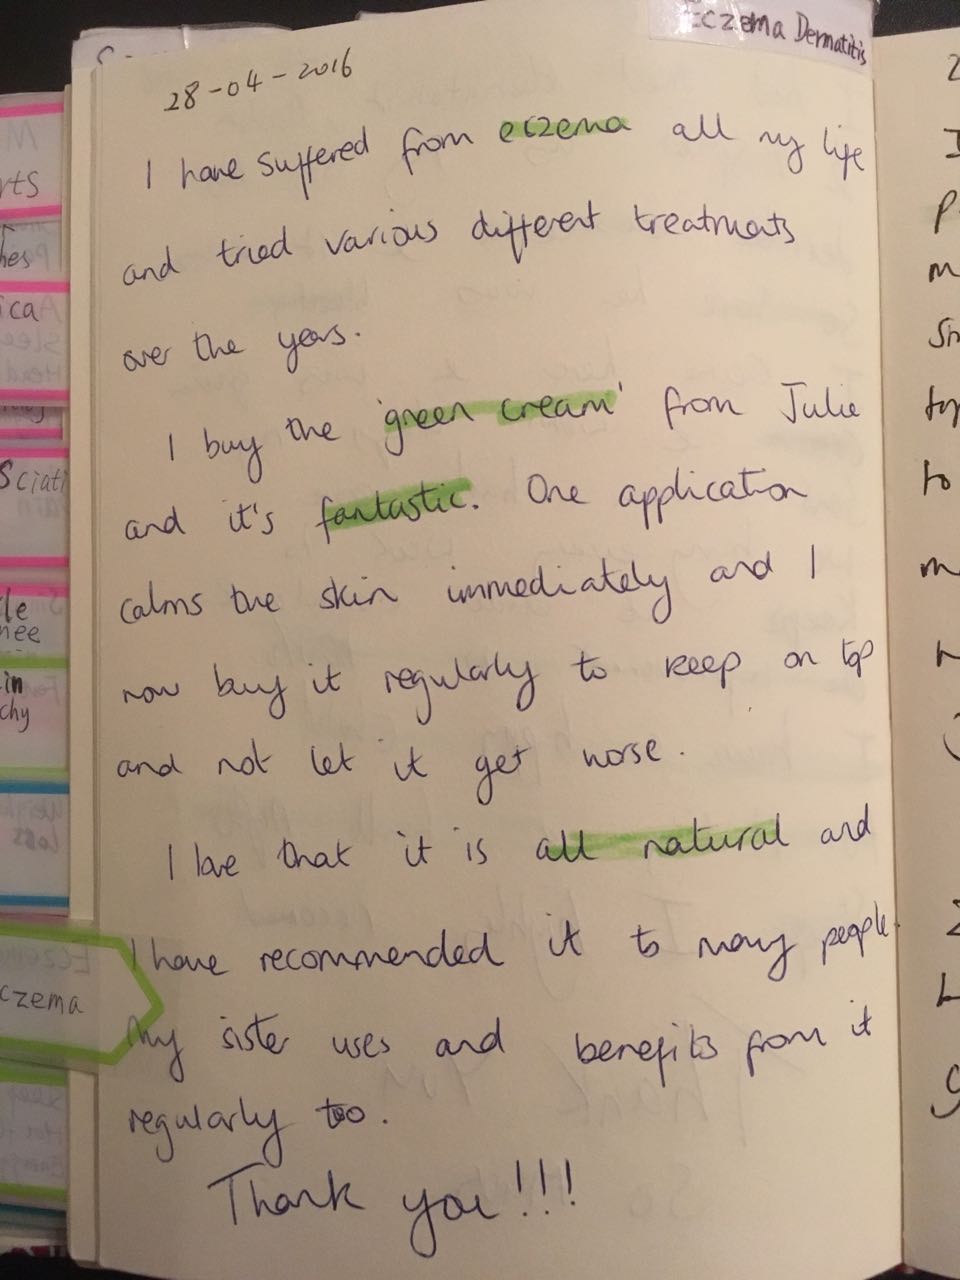 Eczema Dermatitis
28-04-2016
I have suffered from eczema all my life
and tried various different treatments
over the years.
I buy the 'green cream' from Julie
and it's fantastic. One application
calms the skin immediately and I
now buy it regularly to keep on top
and not let it get worse.
I love that it is all natural and
I have recommended it to many people.
My sister uses and benefits from it
regularly too.
Thank you!!!
rts
hes
ica
Sciati
le
nee
in
chy
czema